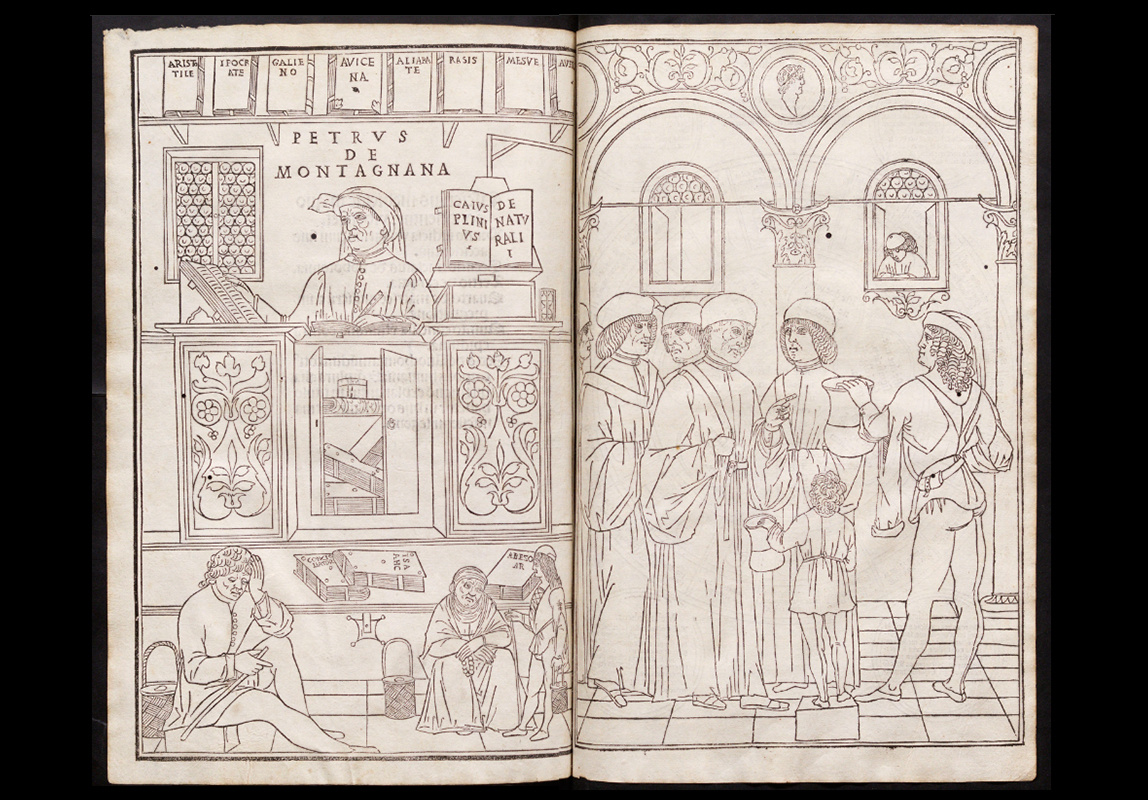 ARISTE
TILE
IPOCR
ATE
GALIE
NO
AVICE
NA
ALIABA
TE
RASIS
MESVE
PETRVS
DE
MONTAGNANA
CAIVS
PLINI
VS
DE
NATV
RALI
ISA
AHC